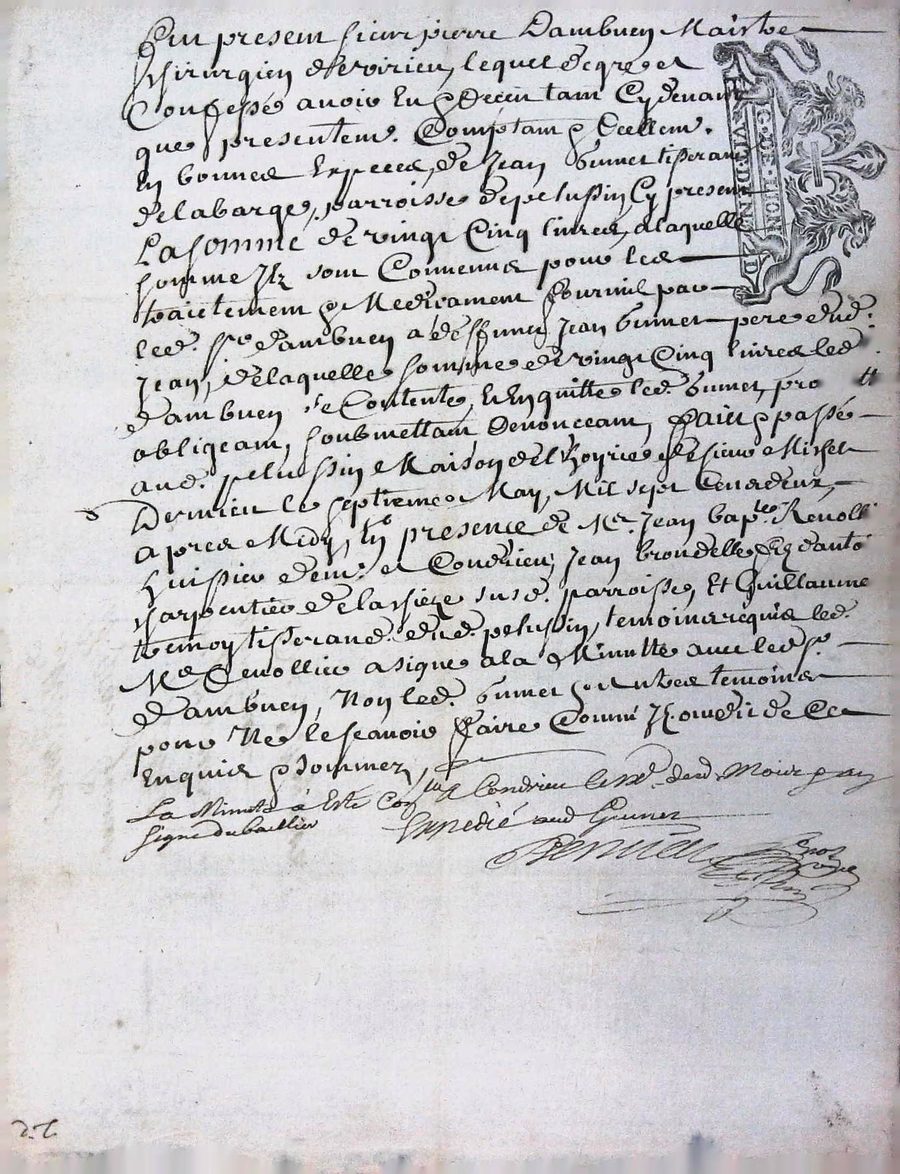 Fut present sieur pierre Dambuen Maistre
Chirurgien de virieu, lequel de gre et
Confesse avoir Eu & Receu tant Cy devant
que presentem. Comptant & Reellem.
En bonnes Especes, de Jean Gunet tisserant
de la barge, parroisse de pelussin Cy present
La somme de vingt Cinq livres, a laquelle
somme Ilz sont Convenus pour les
traictement & Medicament fournis par
led. Sr. dambuen a deffunct Jean Gunet pere dud.
Jean, de laquelle somme de vingt Cinq livres led.
dambuen se Contente, Et En quitte led. Gunet, pro
obligeant, soubmettant Renonceant, faict & passé
aud. pelussin Maison de l'hoyrie de sieur Michel
Dervieu le septiem May, Mil sept Cens deux,
apres Midy, En presence de Me. Jean bapte. Revoll
huissier dem. et Condrieu, Jean brondelle
Charpentier de la susd. parroisse, Et Guillaume
tisserand dud. pelussin, temoins requis led.
Me. Revollier a signe a la Minutte avec led. Sr.
dambuen, Non led. Gunet temoins
pour Ne le scavoir faire Comm' Ilz ont dit de Ce
Enquis & sommez,
La Minute à Esté
signé du baillier
Condrieu
Expedié aud Gunet
d.t.